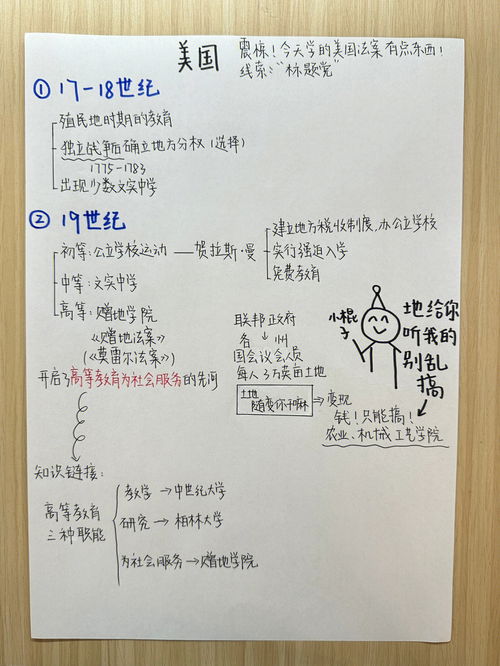 美国
震惊！今天学的美国法案有点东西！
线索："标题党"
① 17-18世纪
殖民地时期的教育
独立战争后确立地方分权（选择）
1775-1783
出现少数文实中学
② 19世纪
初等：公立学校运动——贺拉斯·曼
建立地方税收制度，办公立学校
实行强迫入学
免费教育
中等：文实中学
高等：赠地学院
《赠地法案》
（《莫雷尔法案》）
开启了高等教育为社会服务的先河
联邦政府
各↓州
国会议会员
每人3万英亩土地
土地
随变你干嘛
→变现
钱！只能搞！
农业、机械工艺学院
小棍子
地给你
听我的
别乱
搞
知识链接：
高等教育
三种职能
教学→中世纪大学
研究→柏林大学
为社会服务→赠地学院